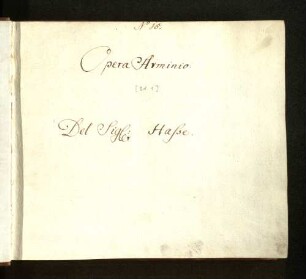 No 18.
Opera Arminio
Del Sigre Hasse.